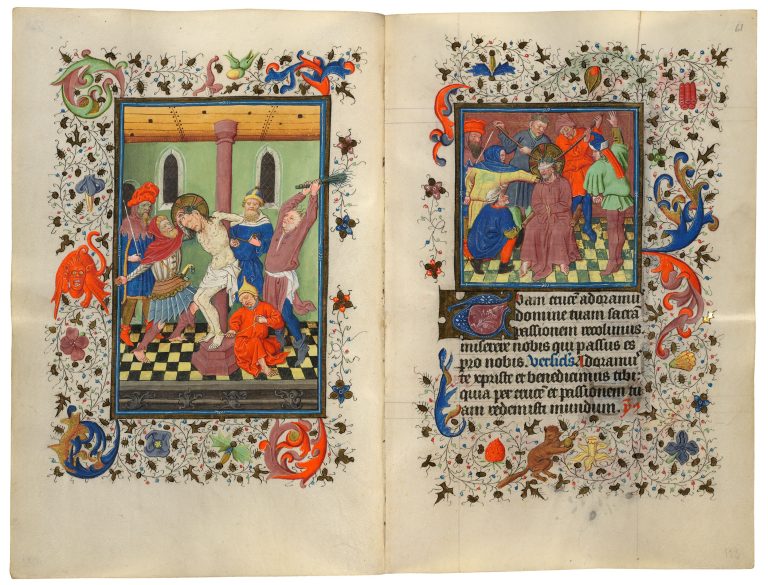 Tuam crucē adoramus
domine tuam sacrā
passionem recolimus.
miserere nobis qui passus es
pro nobis. Versicls Adoramus
te xpriste et benedicimus tibi:
quia per crucē et passionem tu
am redemisti mundum.